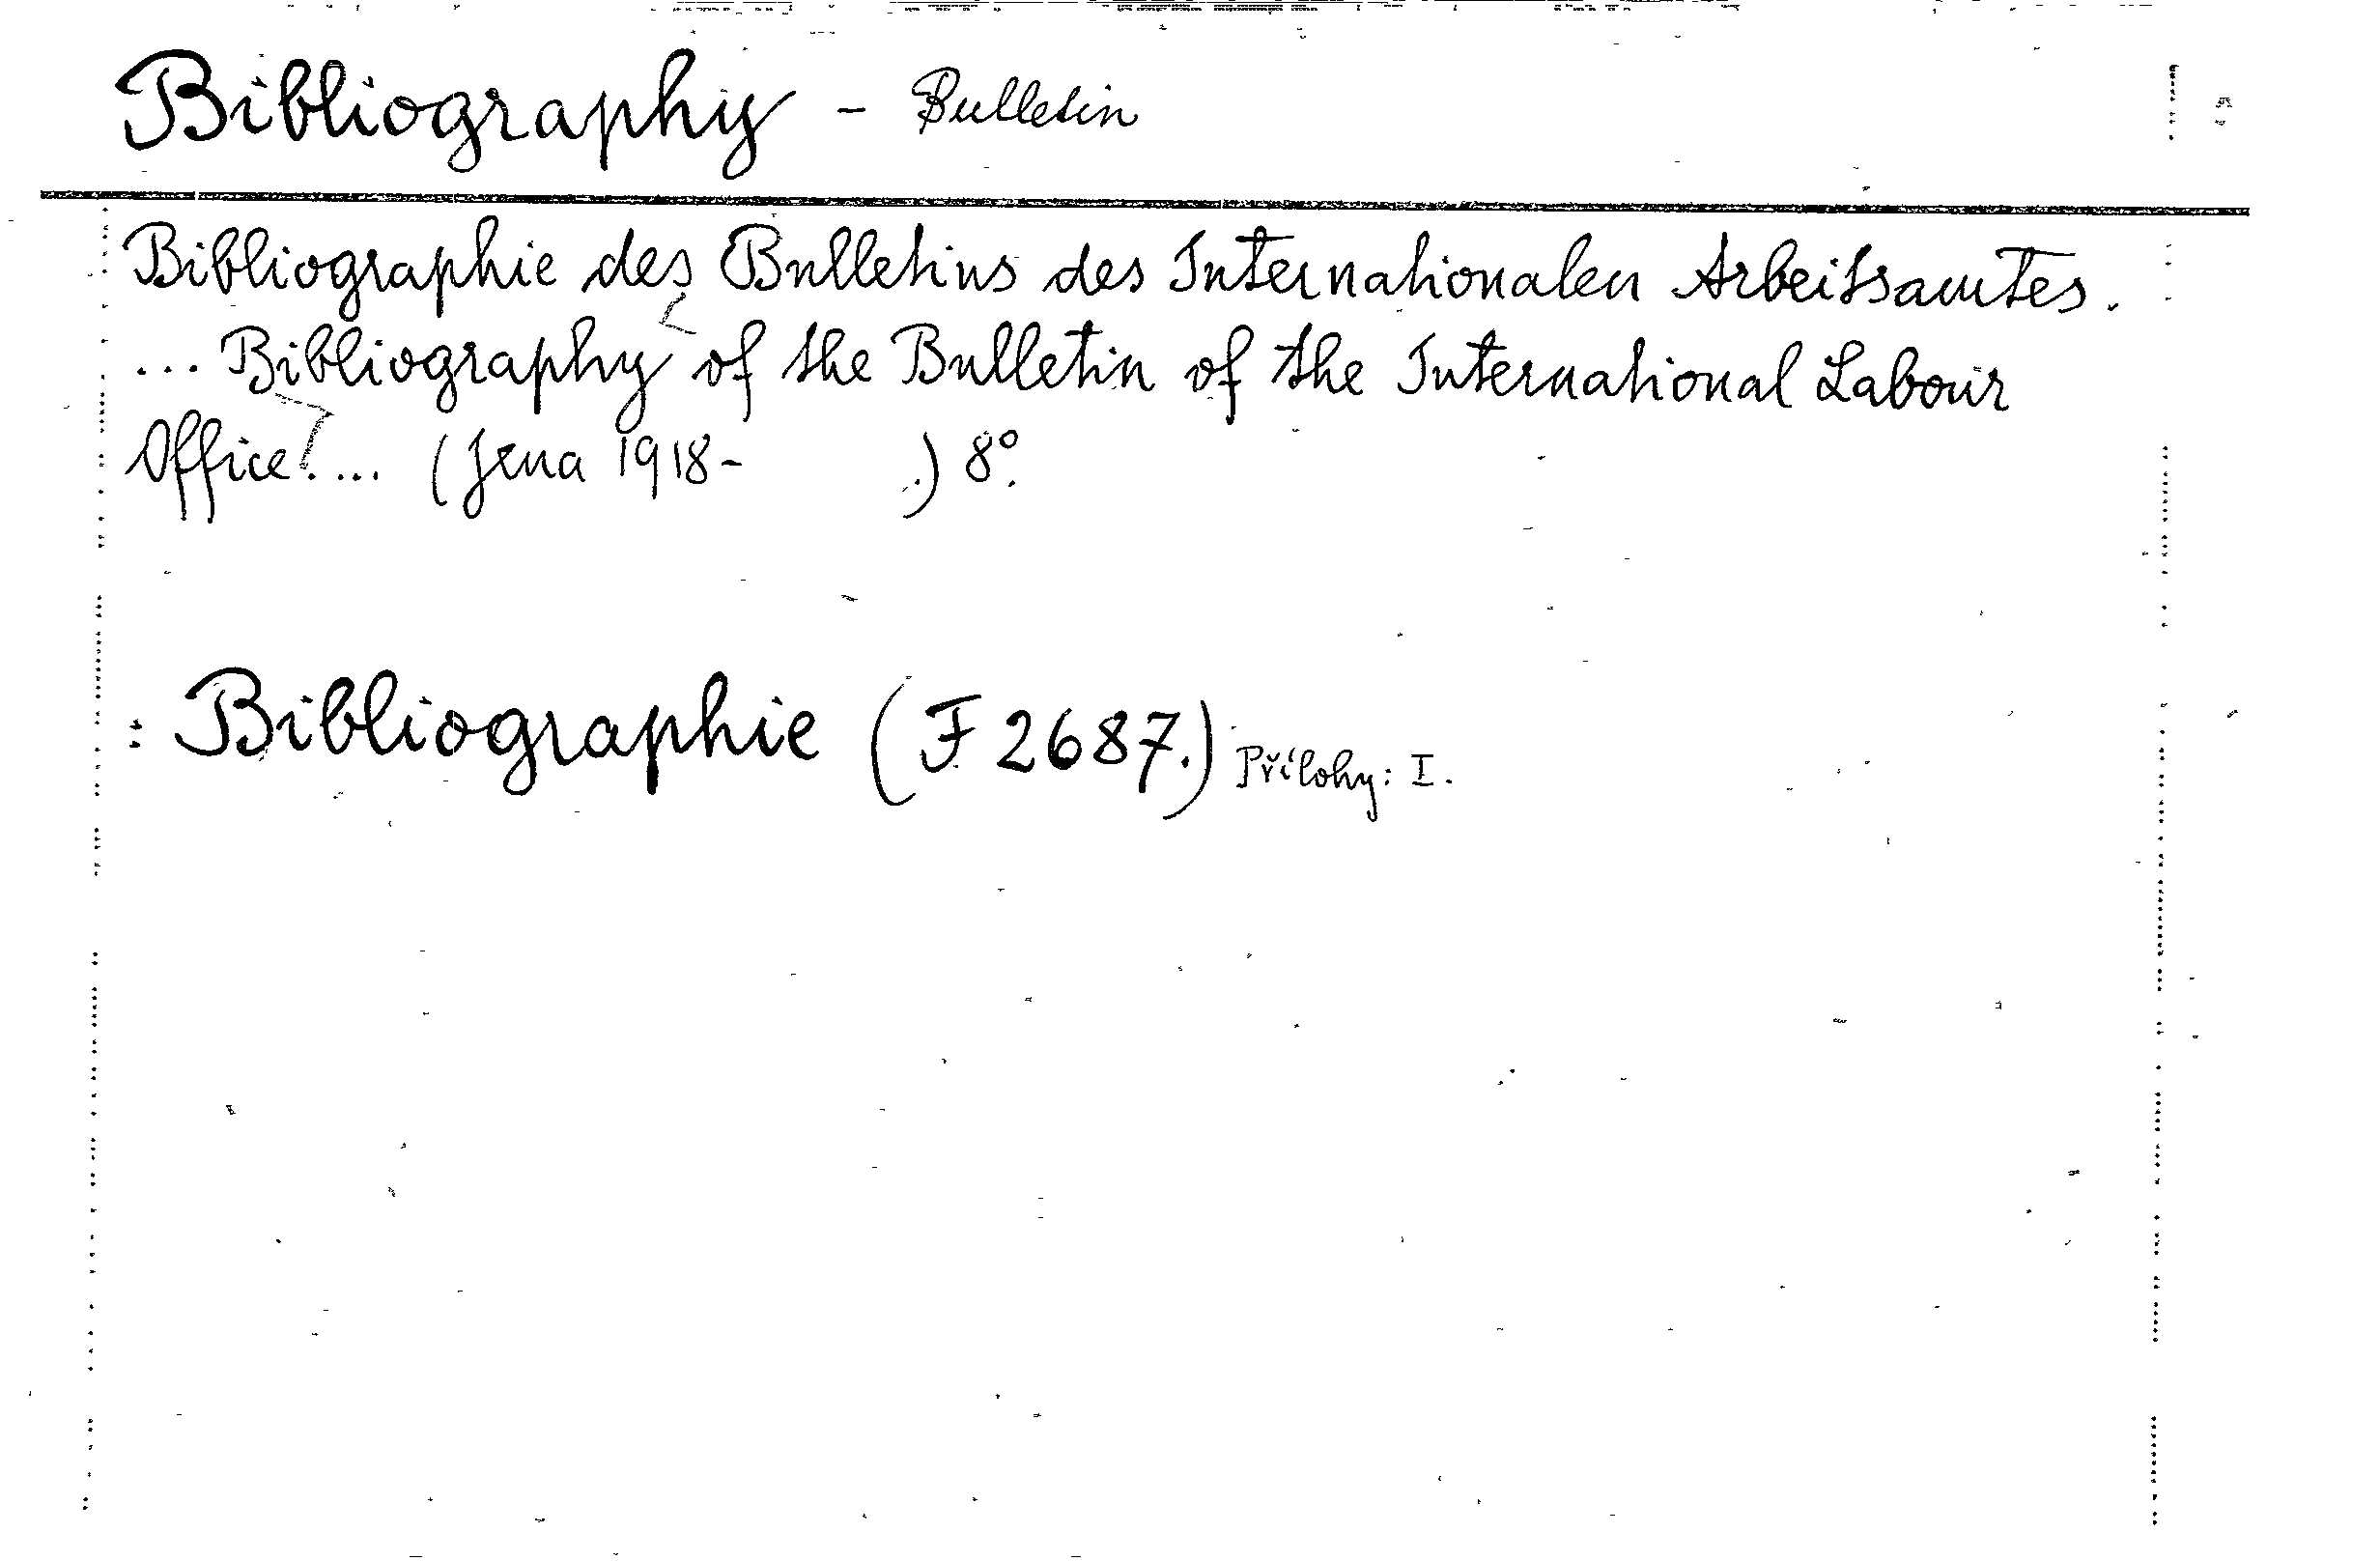 Bibliography - Bulletin
Bibliographie des Bulletins des Internationalen Arbeitsamtes.
... Bibliography of the Bulletin of the International Labour
Office. ... (Jena 1918- .) 8°.
: Bibliographie (F 2687.) Přílohy: I.